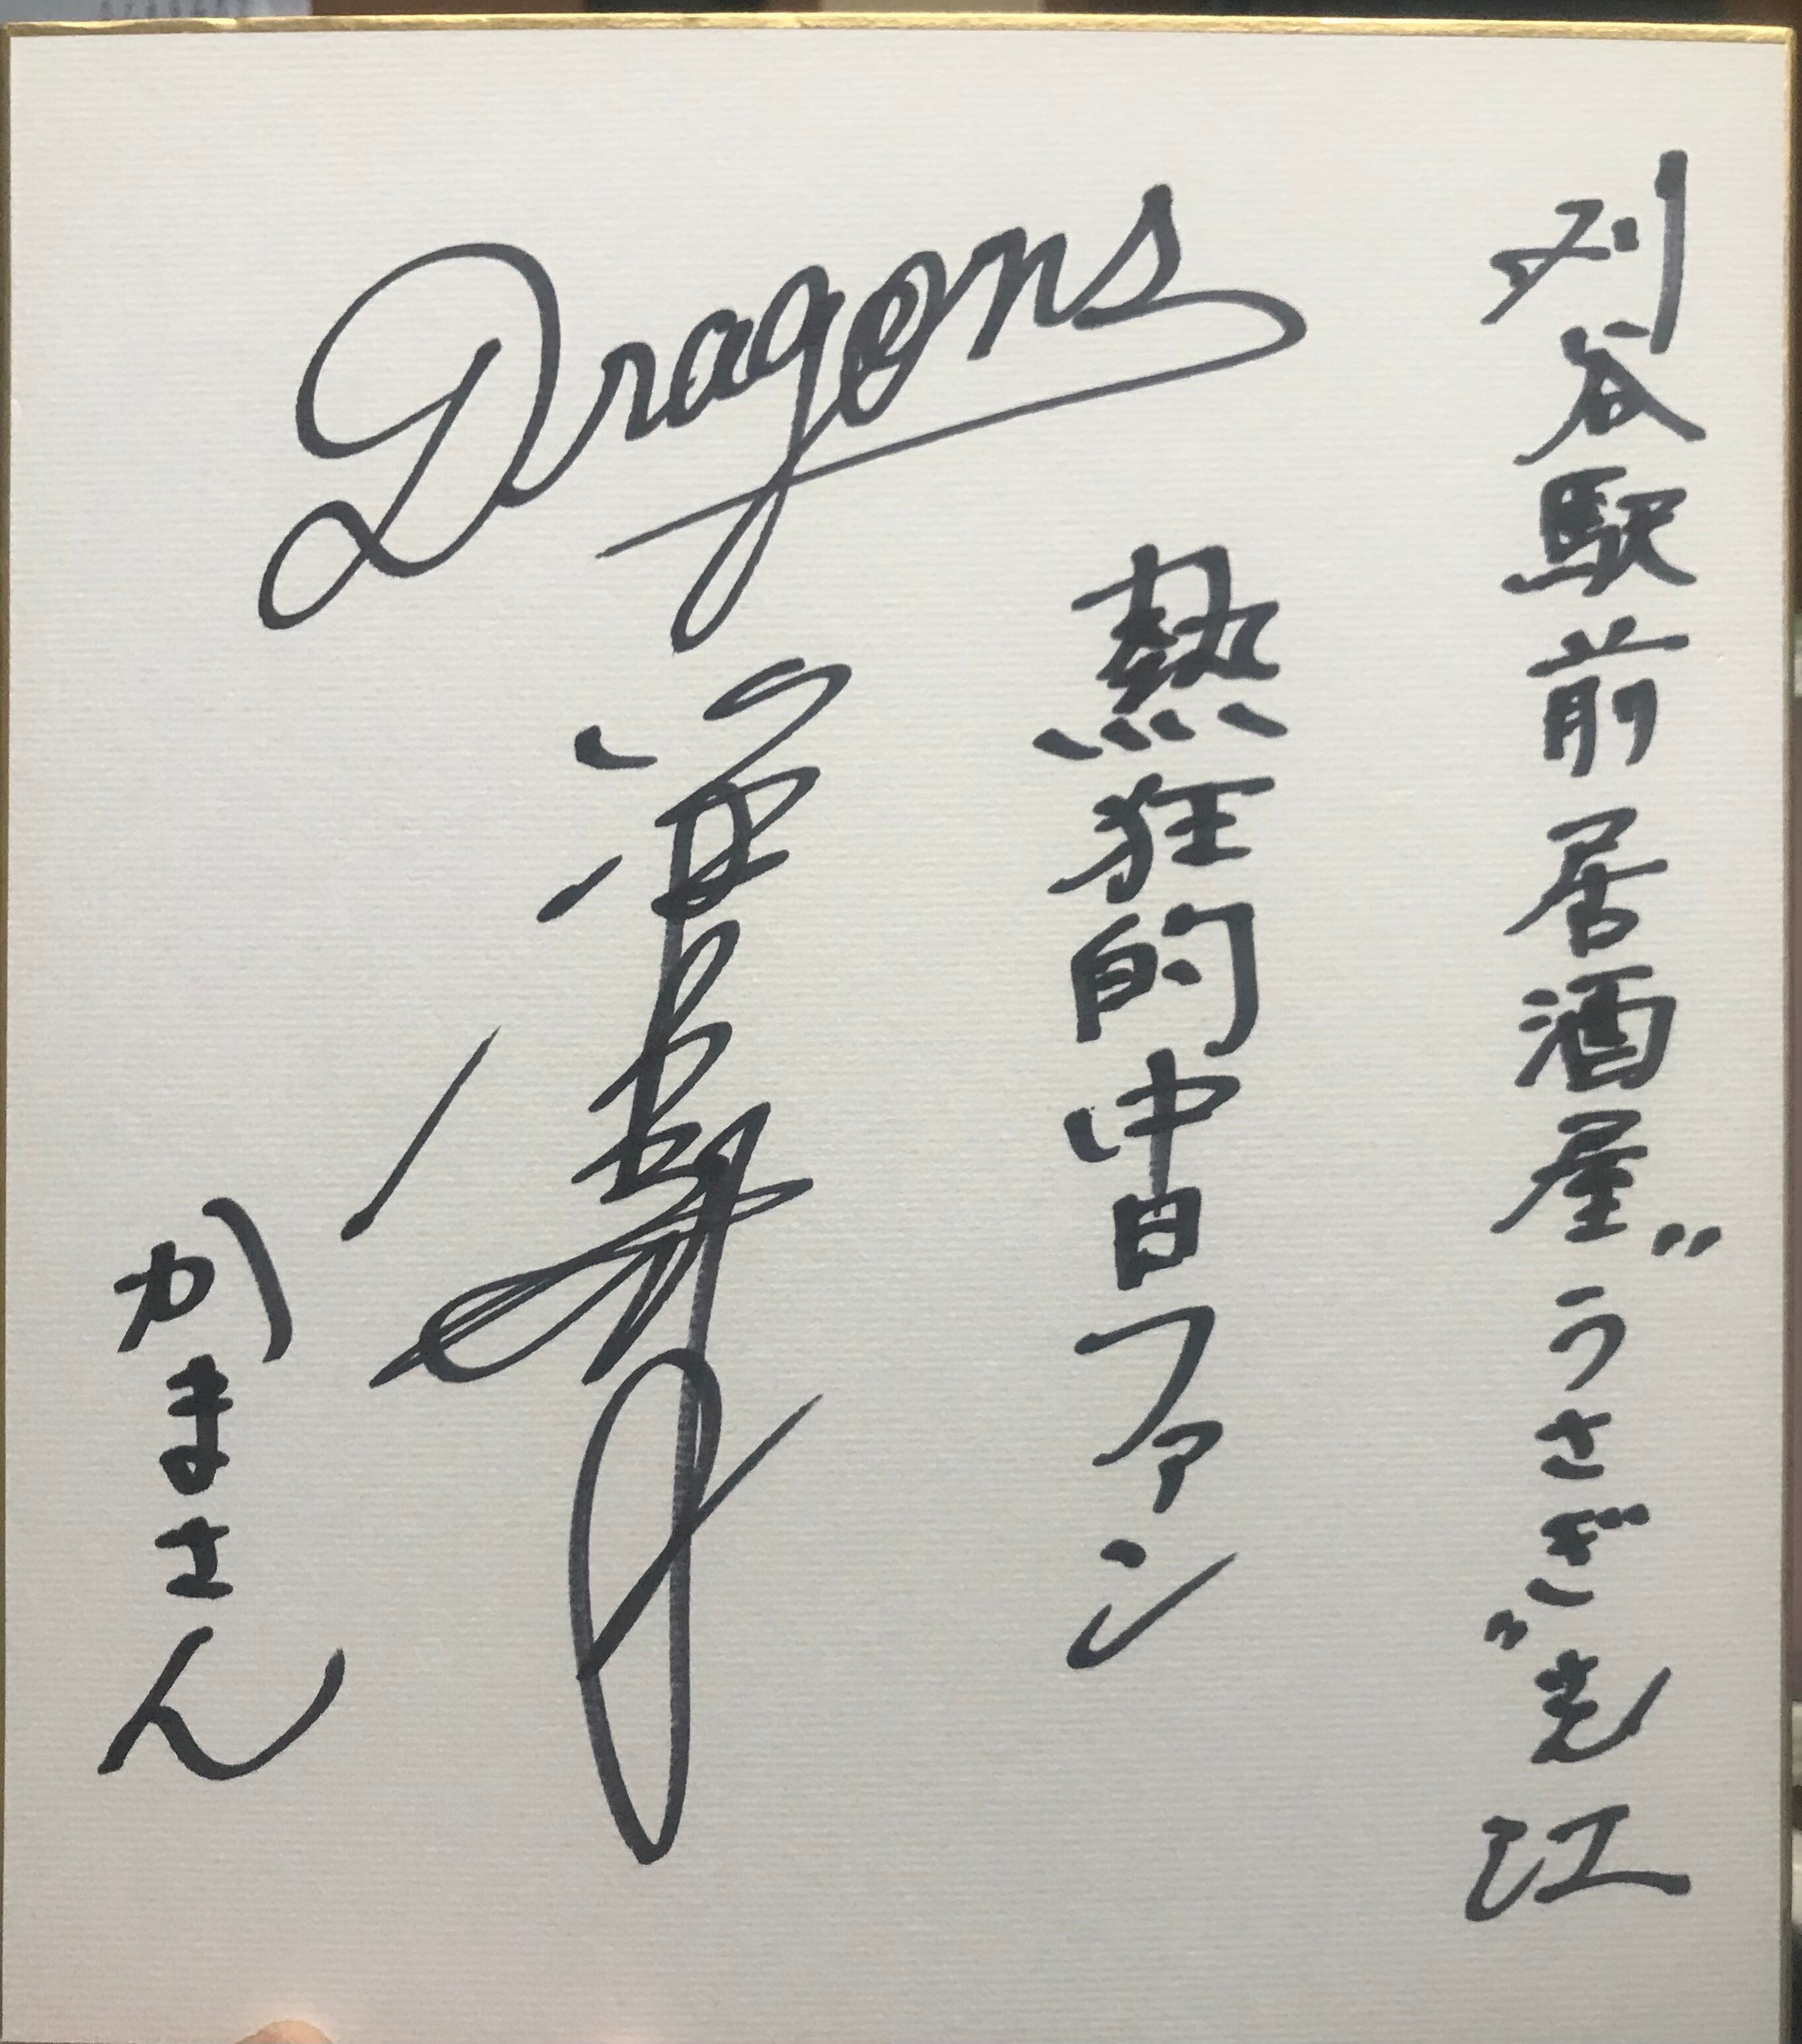 刈谷駅前居酒屋"うさぎ"さん江
熱狂的中日ファン
Dragons
かまさん